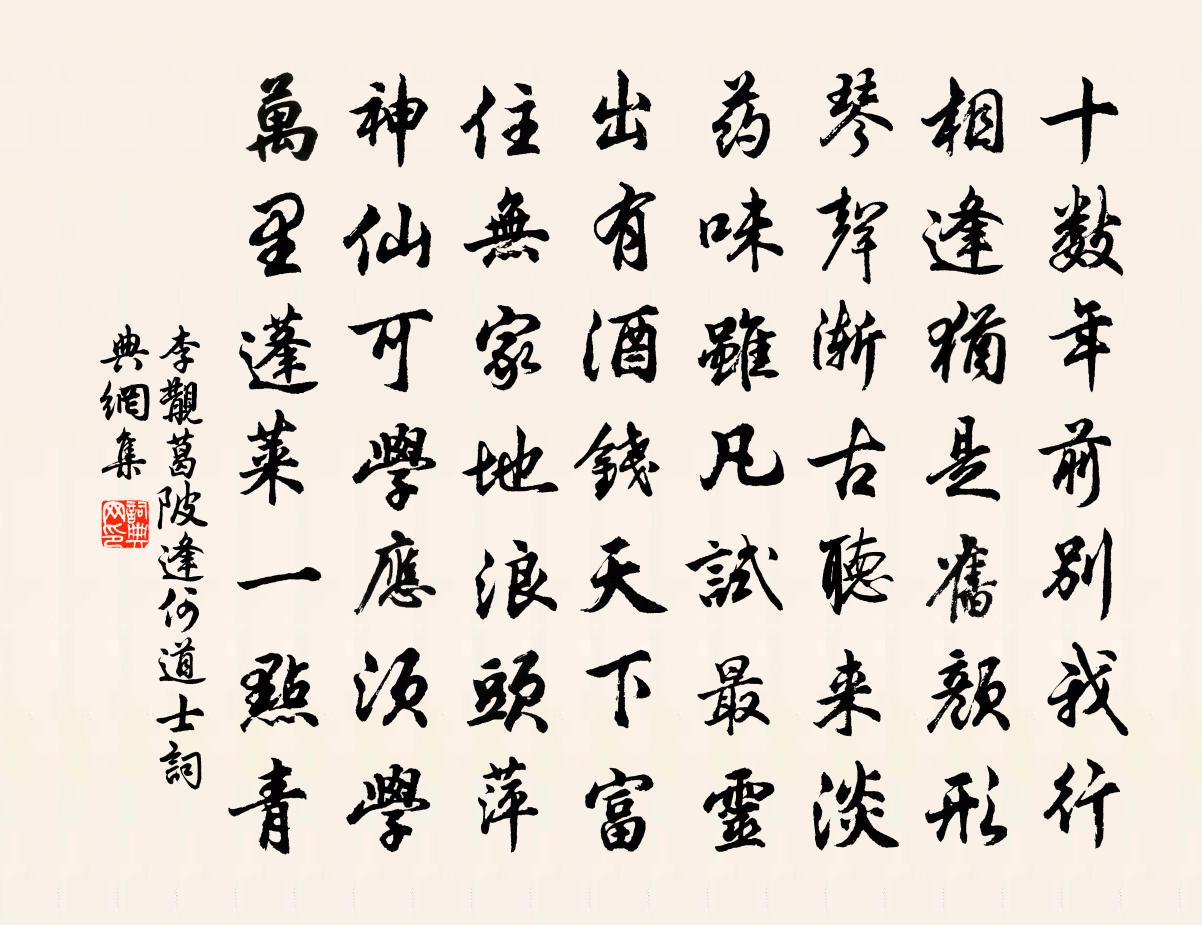 十數年前別我行
相逢猶是舊顏形
琴聲漸古聽来淡
药味雖凡試最靈
出有酒錢天下富
住無家地浪頭萍
神仙可學應須學
萬里蓬莱一點青
李觀葛陂逢何道士詞
典網集
詞典
网印